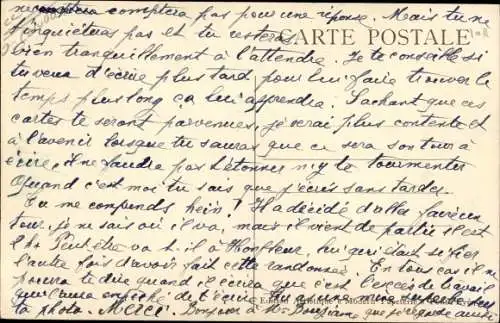 comptera pas pour une réponse. Mais tu ne
t'inquièteras pas et tu resteras
CARTE POSTALE
bien tranquillement à l'attendre. Je te conseille si
tu veux d'écrire plus tard, pour lui faire trouver le
temps plus long ça lui apprendra. Sachant que ces
cartes te seront parvenues, je serai plus contente et
à l'avenir lorsque tu sauras que ce sera son tour à
écrire, il ne faudra pas t'étonner ni y te tourmenter
Quand c'est moi tu sais que j'écris sans tarder.
Tu me comprends hein! Il a décidé d'aller faire un
tour, je ne sais où il va, mais il vient de partir il est
1h. Peut-être va t-il à Honfleur, lui qui était si fier
l'autre fois d'avoir fait cette randonnée. En tous cas il ne
pourra te dire quand il écrira que c'est l'excès de travail
qui l'aura empêché de t'écrire.
la photo. Bonjour à